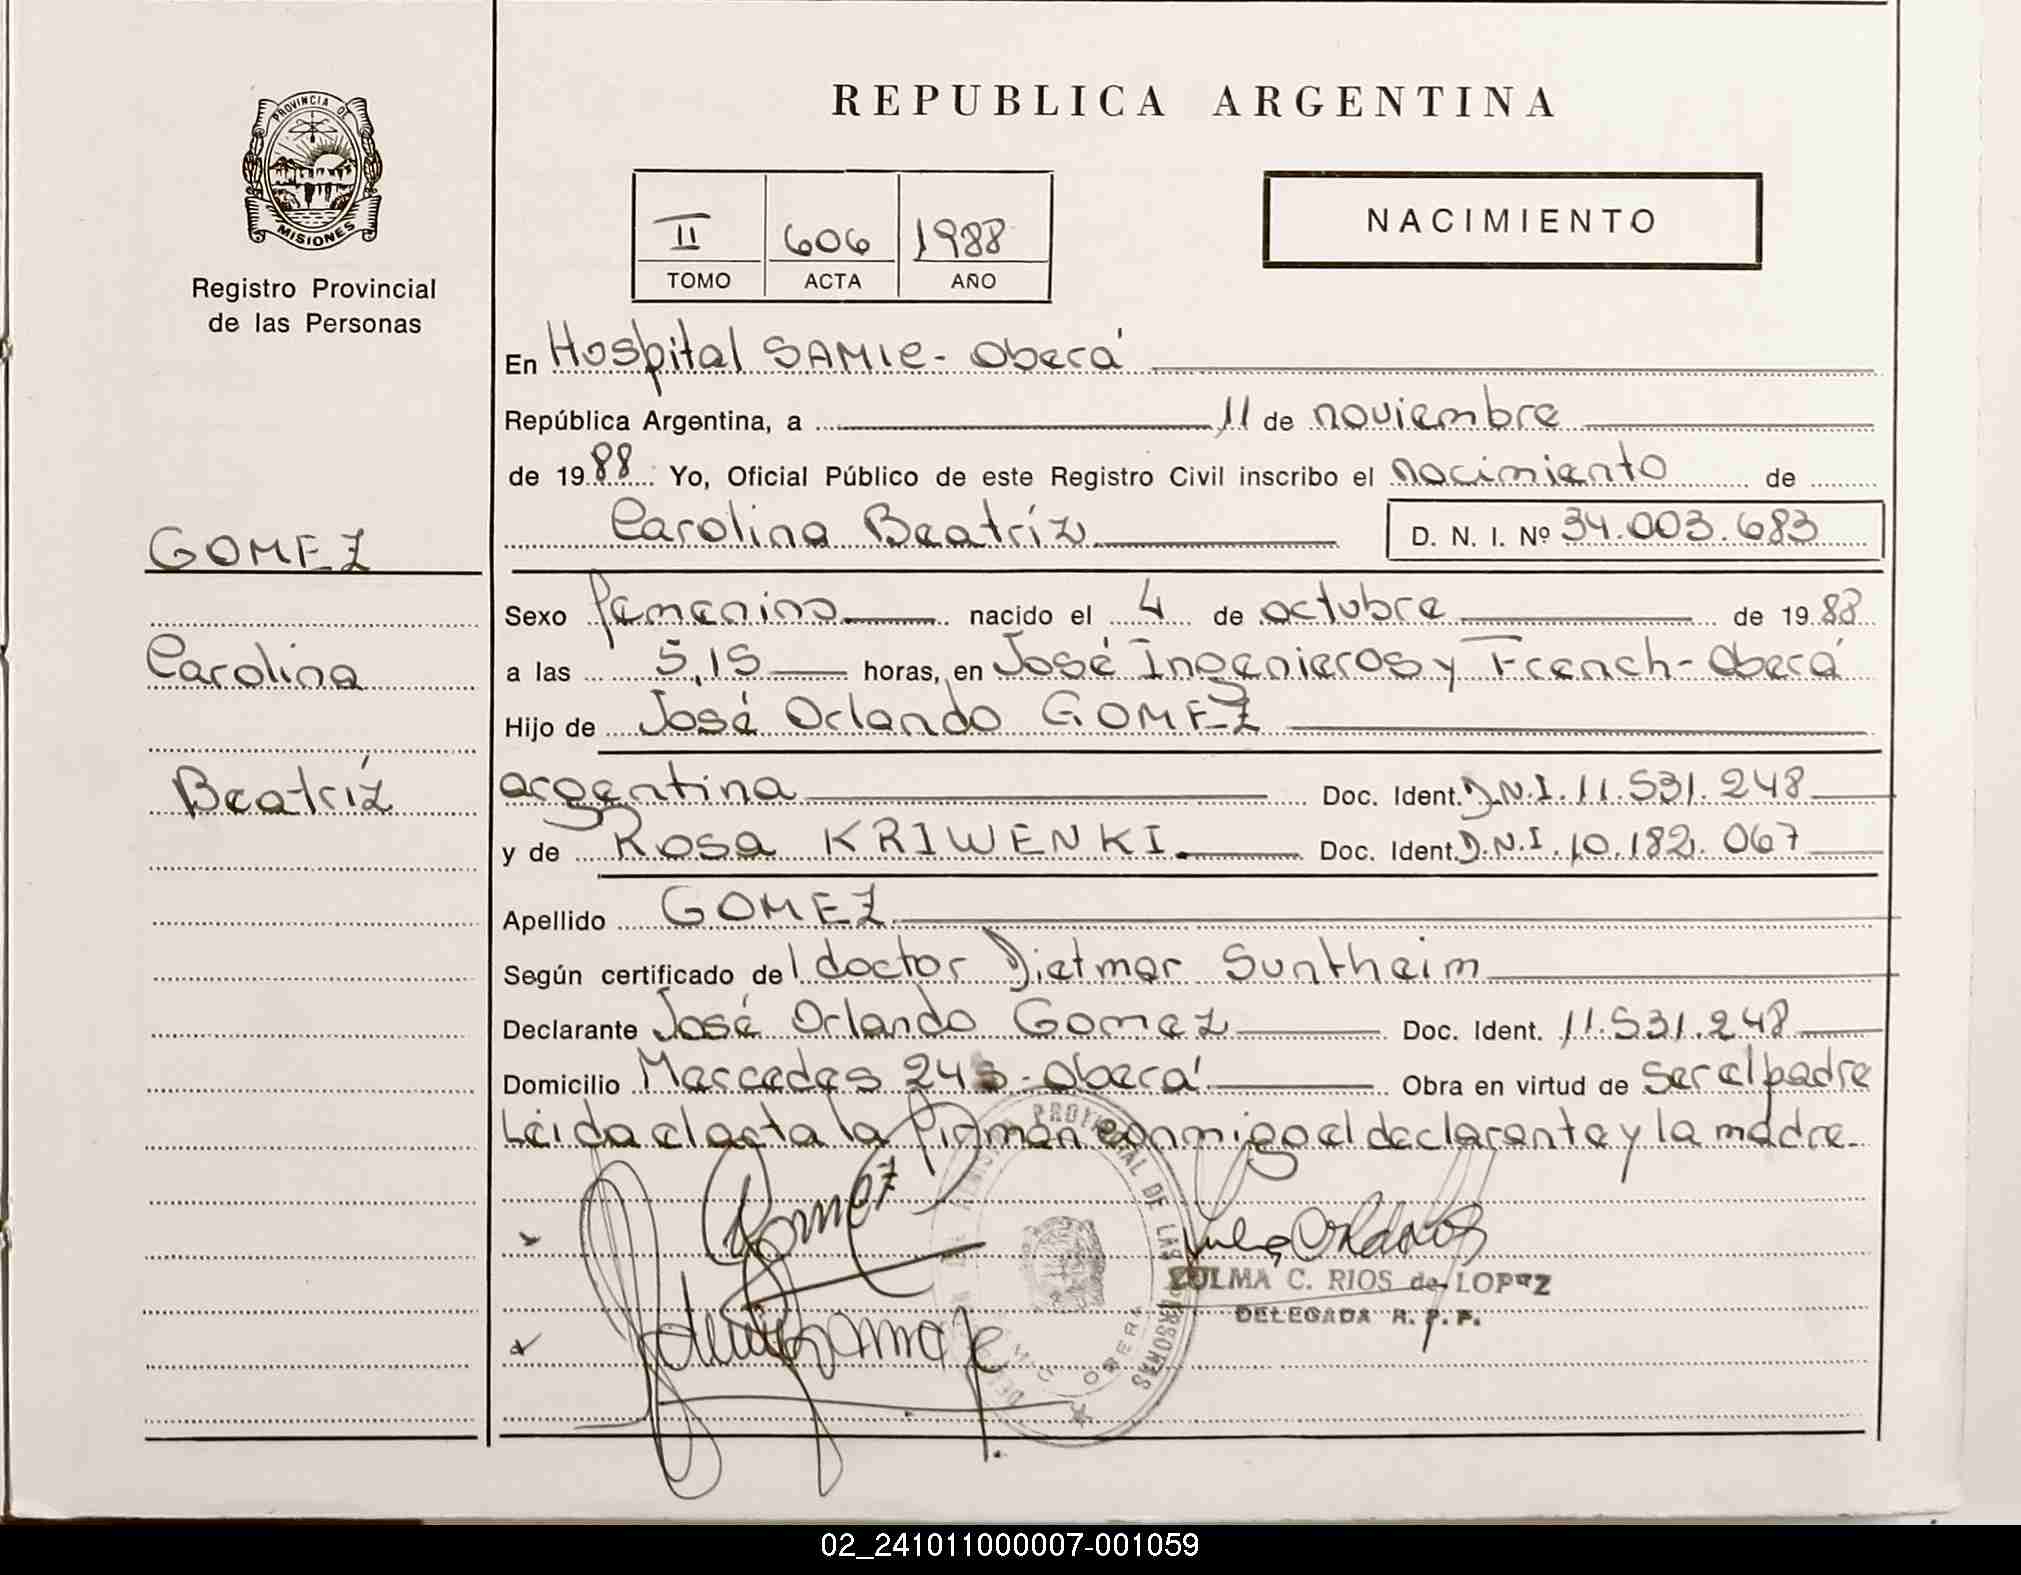 REPUBLICA ARGENTINA
PROVINCIA DE
MISIONES
Registro Provincial
de las Personas
II 606 1988
TOMO ACTA AÑO
NACIMIENTO
En Hospital SAMIC - Oberá
República Argentina, a 11 de noviembre
de 1988 Yo, Oficial Público de este Registro Civil inscribo el nacimiento de
Carolina Beatríz D. N. I. Nº 34.003.683
GOMEZ
Carolina
Beatríz
Sexo femenino nacido el 4 de octubre de 1988
a las 5,15 horas, en José Ingenieros y French - Oberá
Hijo de José Orlando GOMEZ
argentina Doc. Ident. D.N.I. 11.531.248
y de Rosa KRIWENKI Doc. Ident. D.N.I. 10.182.067
Apellido GOMEZ
Según certificado del doctor Dietmar Suntheim
Declarante José Orlando Gomez Doc. Ident. 11.531.248
Domicilio Mercedes - Oberá Obra en virtud de ser el padre
Leida el acta la firman conmigo el declarante y la madre.
Gomez
PROVINCIAL DE LAS PERSONAS
OBERA
ZULMA C. RIOS de LOPEZ
DELEGADA R. P. P.
02_241011000007-001059